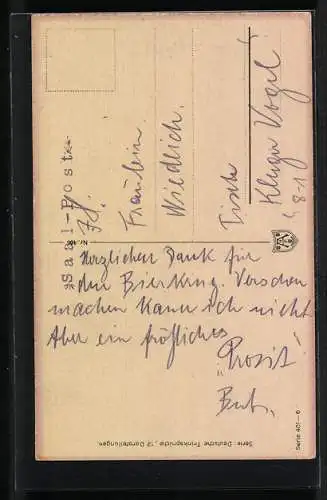 *Saal-Post*
Fräulein
Wiedlich.
Tisch
Kluger Vogel
Herzlichen Dank für
den Bierkrug. Verschen
machen kann ich nicht
Aber ein fröhliches
"Prosit"
Serie: Deutsche Trinksprüche, 12 Darstellungen
Serie 401—6